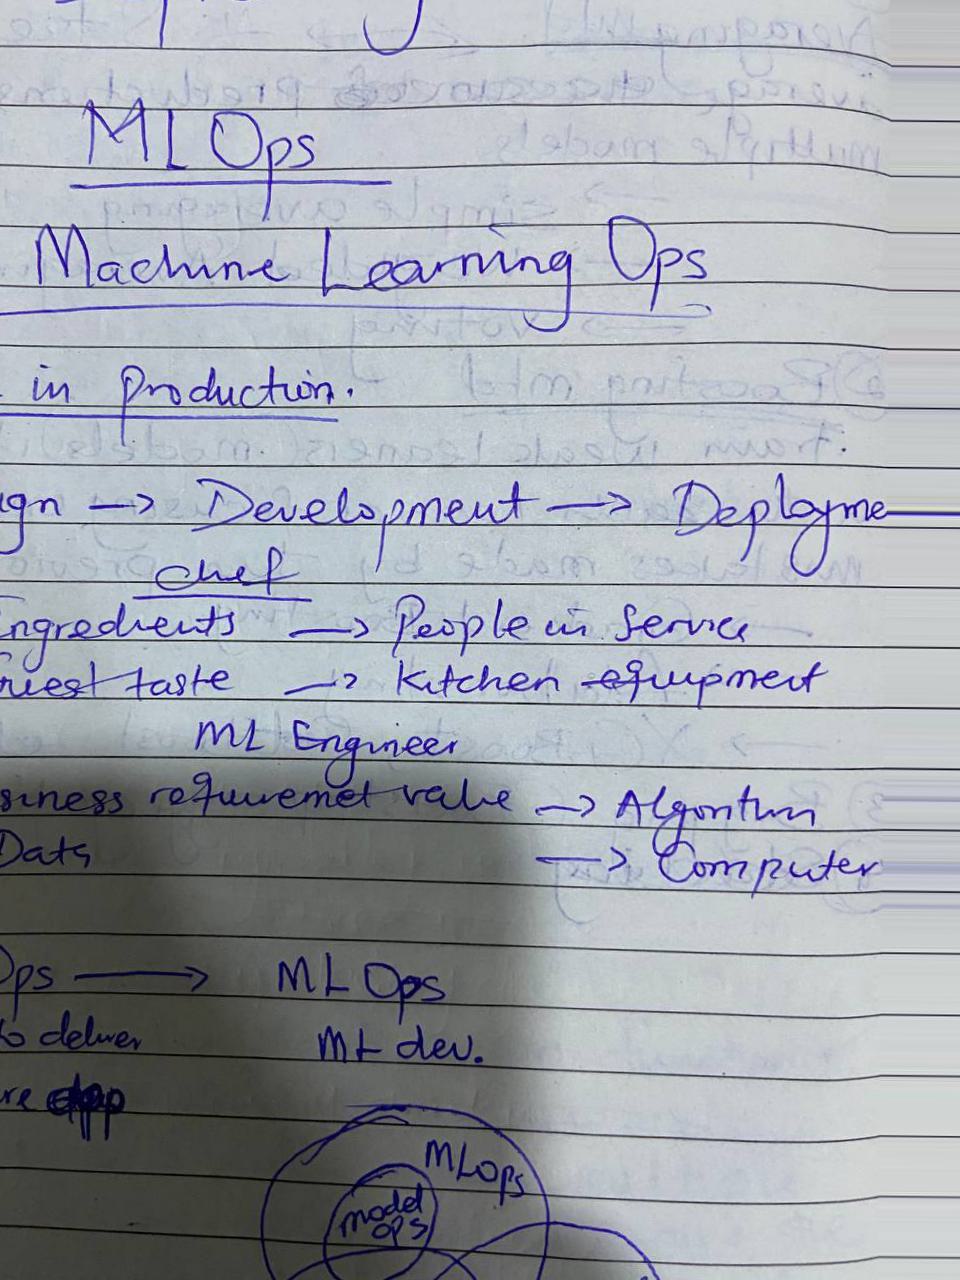 MLOps
Machine Learning Ops
in production.
ign → Development → Deployme
chef
Ingredients → People in Service
taste → Kitchen equipment
ML Engineer
siness requuremet value → Algorithm
Data → Computer
Ops → MLOps
to deliver ML dev.
re app
MLOps
model
OPS